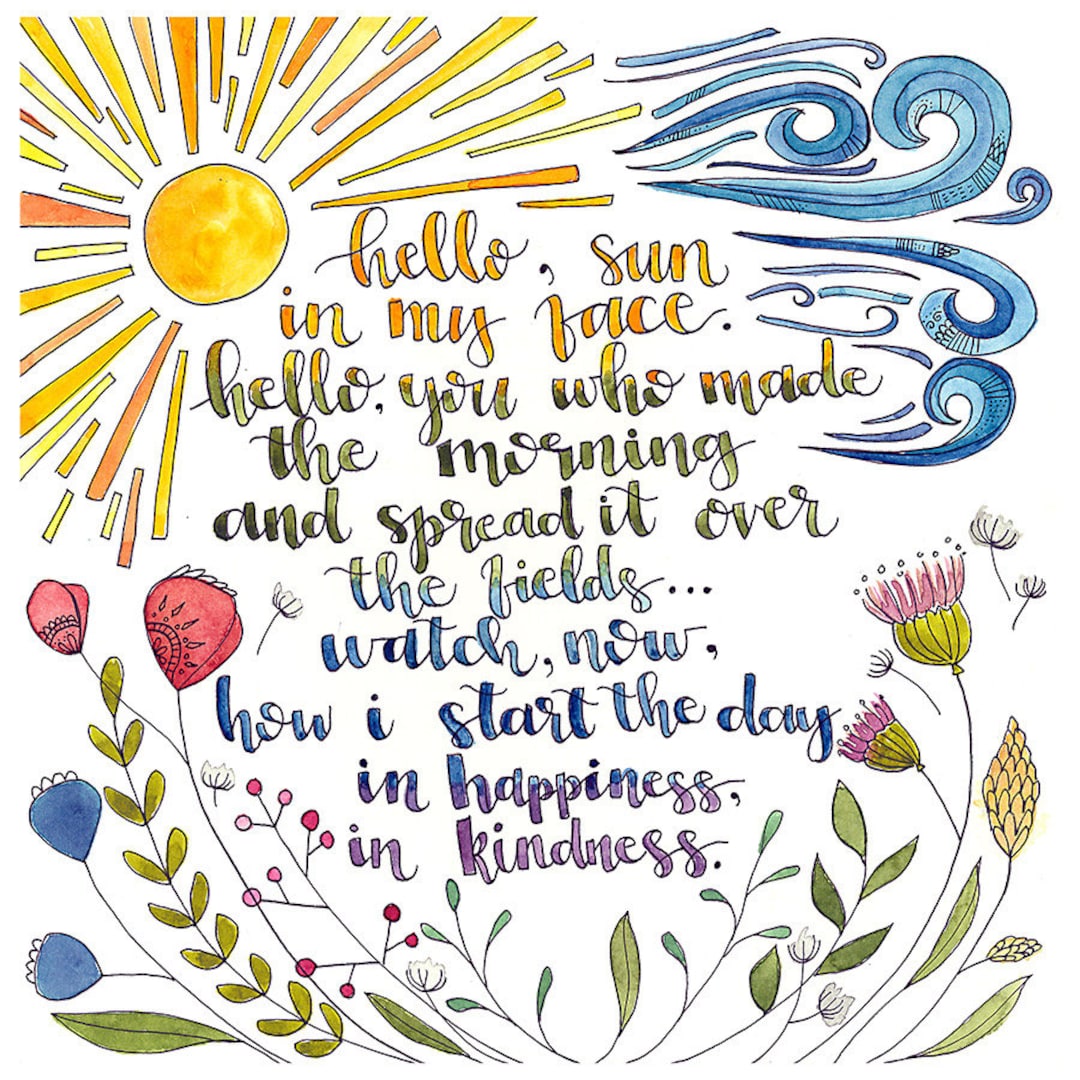 hello, sun
in my face.
hello, you who made
the morning
and spread it over
the fields...
watch, now,
how i start the day
in happiness,
in kindness.